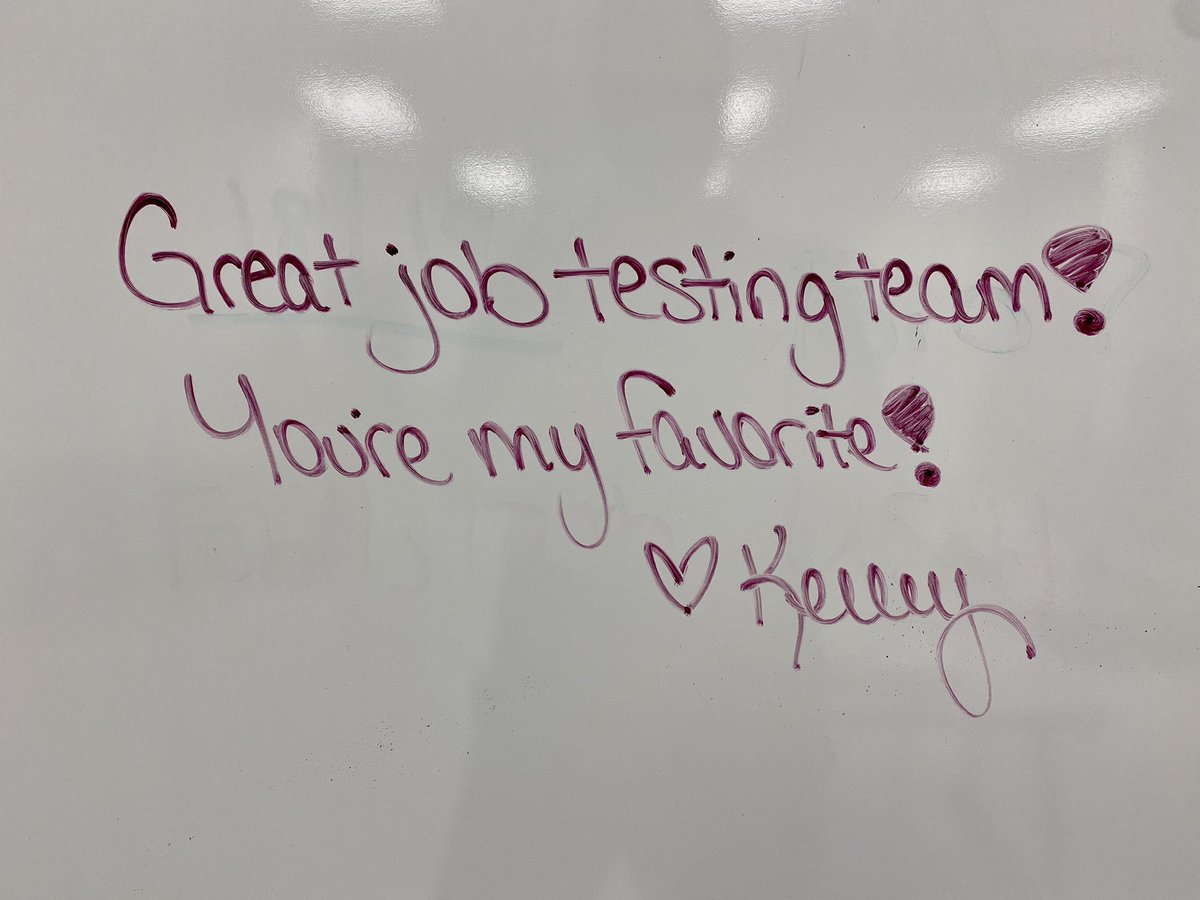 Great job testing team!
You're my favorite!
♡ Kelly